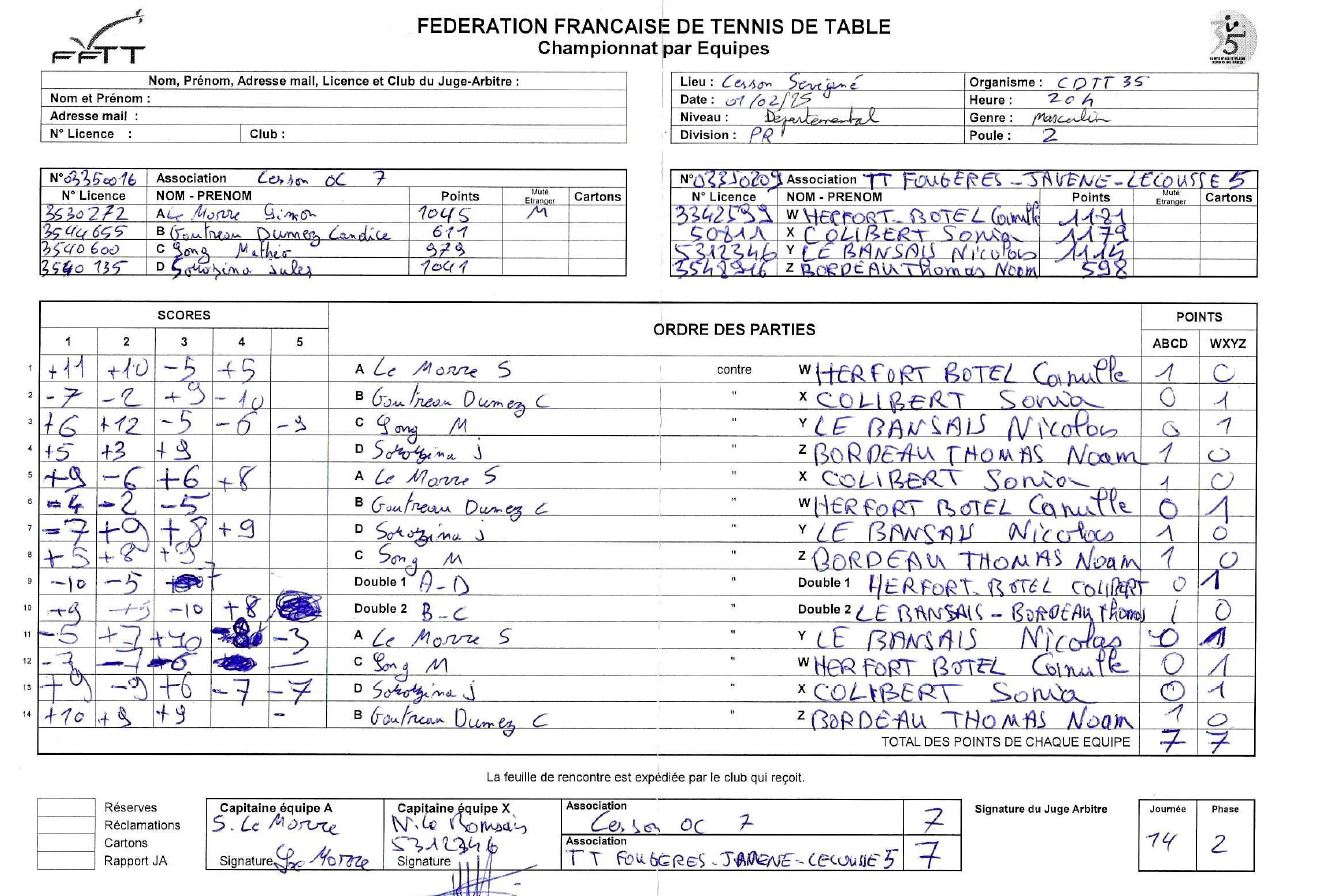 FEDERATION FRANCAISE DE TENNIS DE TABLE
Championnat par Equipes
FFTT
5
Nom, Prénom, Adresse mail, Licence et Club du Juge-Arbitre :
Nom et Prénom :
Adresse mail :
N° Licence : Club :
Lieu : Cesson Sevigné Organisme : CDTT 35
Date : 01/02/25 Heure : 20h
Niveau : Départemental Genre : Masculin
Division : PR Poule : 2
N°03350016 Association Cesson OC 7
N° Licence NOM - PRENOM Points Muté Etranger Cartons
3530272 A Le Morre Simon 1045 M
3544655 B Goutreau Dumez Candice 611
3540600 C Song Mathéo 979
3540135 D Jules 1041
N°03350209 Association TT FOUGERES-JAVENE-LECOUSSE 5
N° Licence NOM - PRENOM Points Muté Etranger Cartons
3342599 W HERFORT-BOTEL Camille 1181
50811 X COLIBERT Sonia 1179
5312346 Y LE BANSAIS Nicolas 1114
3548916 Z BORDEAU Thomas Noam 598
SCORES ORDRE DES PARTIES POINTS
1 2 3 4 5 ABCD WXYZ
1 +11 +10 -5 +5 A Le Morre S contre W HERFORT BOTEL Camille 1 0
2 -7 -2 +9 -10 B Goutreau Dumez C " X COLIBERT Sonia 0 1
3 +6 +12 -5 -6 -9 C Song M " Y LE BANSAIS Nicolas 0 1
4 +5 +3 +9 D J " Z BORDEAU THOMAS Noam 1 0
5 +9 -6 +6 +8 A Le Morre S " X COLIBERT Sonia 1 0
6 -4 -2 -5 B Goutreau Dumez C " W HERFORT BOTEL Camille 0 1
7 -7 +9 +8 +9 D J " Y LE BANSAIS Nicolas 1 0
8 +5 +8 +9 C Song M " Z BORDEAU THOMAS Noam 1 0
9 -10 -5 7 Double 1 A-D Double 1 HERFORT-BOTEL COLIBERT 0 1
10 +9 -10 +8 Double 2 B-C " Double 2 LE BANSAIS - BORDEAU Thomas 1 0
11 -5 +7 +10 -3 A Le Morre S " Y LE BANSAIS Nicolas 0 1
12 -6 C Song M " W HERFORT BOTEL Camille 0 1
13 +9 -9 +6 -7 -7 D J " X COLIBERT Sonia 0 1
14 +10 +9 +9 - B Goutreau Dumez C " Z BORDEAU THOMAS Noam 1 0
TOTAL DES POINTS DE CHAQUE EQUIPE 7 7
La feuille de rencontre est expédiée par le club qui reçoit.
Réserves
Réclamations
Cartons
Rapport JA
Capitaine équipe A
S. Le Morre
Signature Le Morre
Capitaine équipe X
5312346
Signature
Association
Cesson OC 7 7
Association
TT FOUGERES-JAVENE-LECOUSSE 5 7
Signature du Juge Arbitre
Journée Phase
14 2